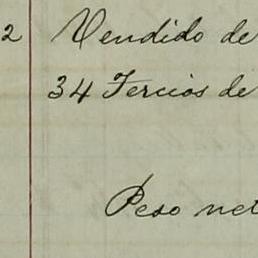 2 Vendido de
34 Tercios de
Peso net